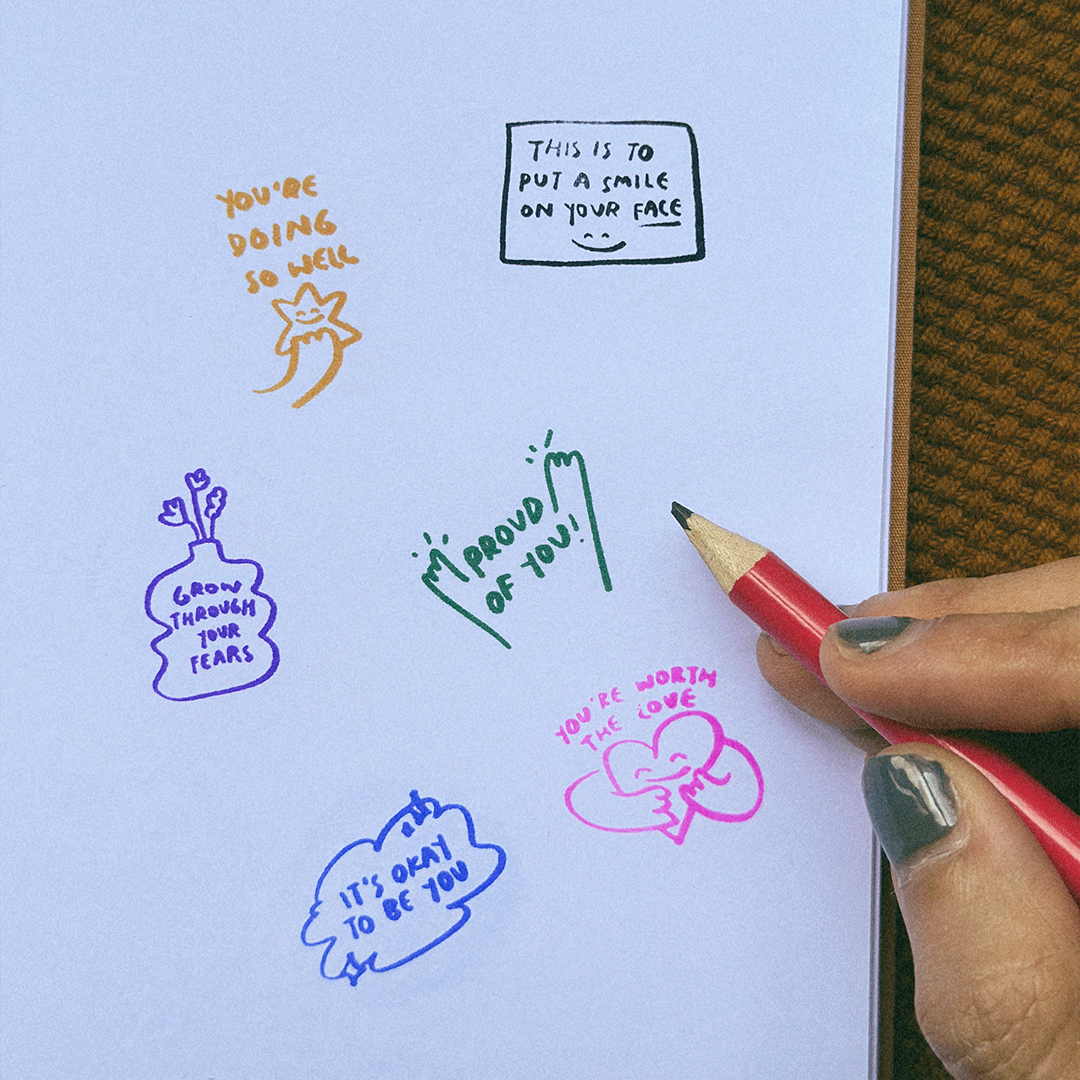 THIS IS TO
PUT A SMILE
ON YOUR FACE
YOU'RE
DOING
SO WELL
PROUD
OF YOU!
GROW
THROUGH
YOUR
FEARS
YOU'RE WORTH
THE LOVE
IT'S OKAY
TO BE YOU